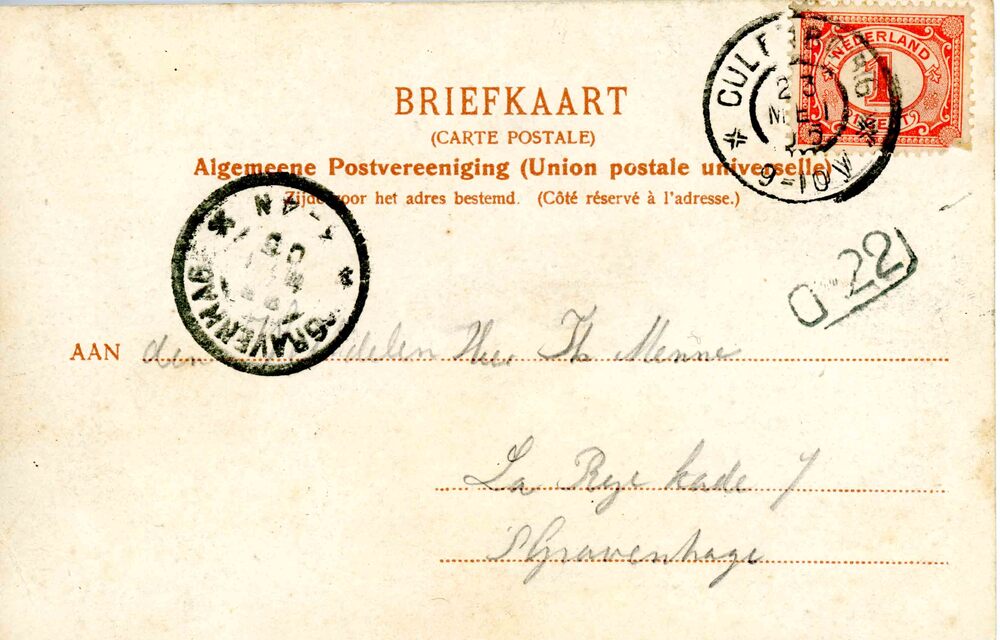 BRIEFKAART
(CARTE POSTALE)
Algemeene Postvereeniging (Union postale universelle)
Zijde voor het adres bestemd. (Côté réservé à l'adresse.)
NEDERLAND
1
CENT
CULEMBORG
9-10 V
'S GRAVENHAGE
22
AAN den Heer Th Menne
La Reye kade 7
S'Gravenhage